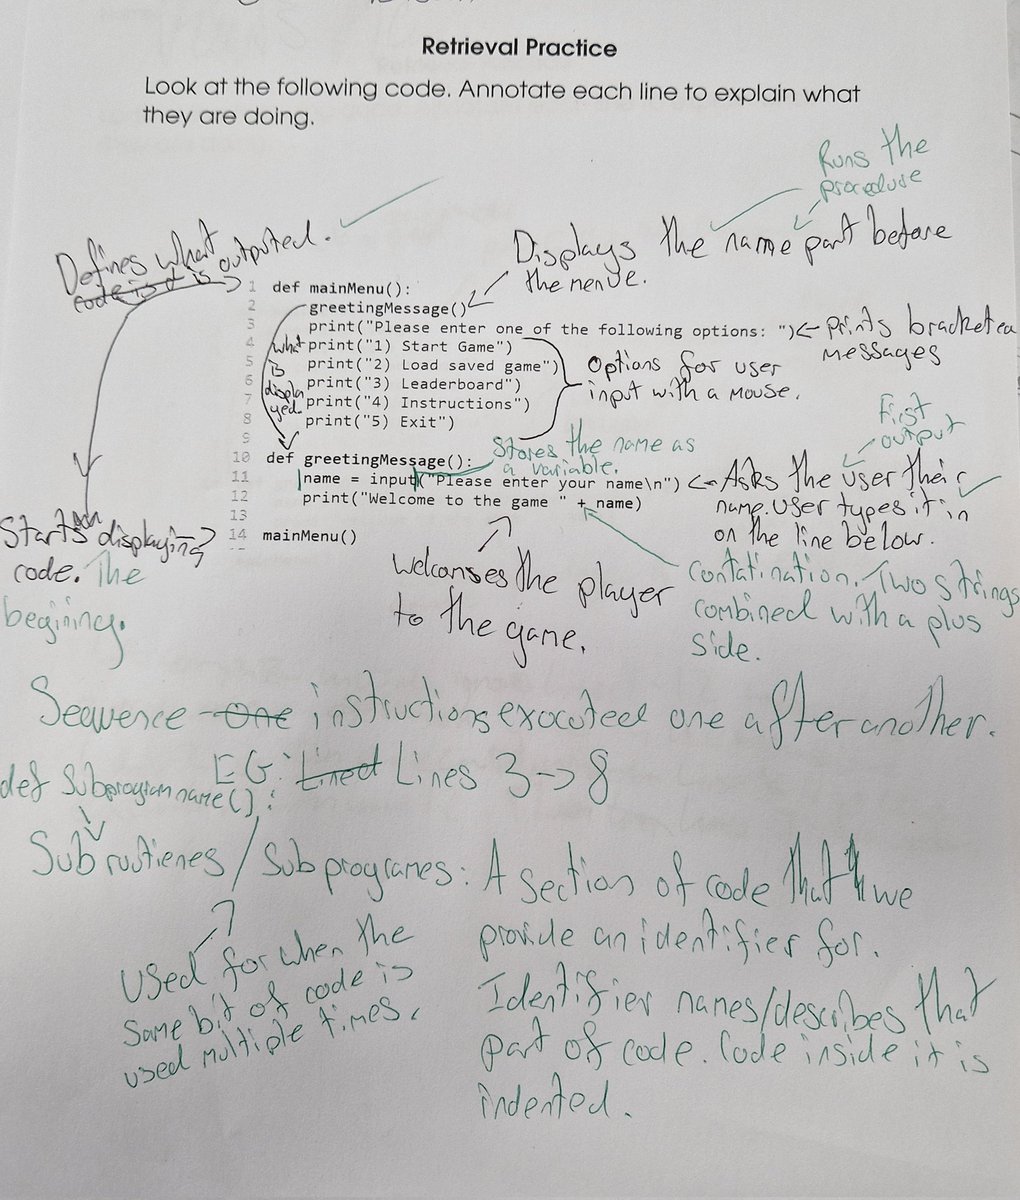 Retrieval Practice
Look at the following code. Annotate each line to explain what
they are doing.
Runs the
procedure
Defines what
code is it is outputed.
Displays the name part before
the menue.
1 def mainMenu():
2 greetingMessage()
3 print("Please enter one of the following options: ")
4 print("1) Start Game")
5 print("2) Load saved game")
6 print("3) Leaderboard")
7 print("4) Instructions")
8 print("5) Exit")
9
10 def greetingMessage():
11 name = input("Please enter your name\n")
12 print("Welcome to the game " + name)
13
14 mainMenu()
what
is
displa
yed.
prints bracketed
messages
Options for user
input with a mouse.
First
output
Stores the name as
a variable.
Asks the user their
name. User types it in
on the line below.
Starts displaying
code. The
begining.
Welcomses the player
to the game.
Contatination. Two strings
combined with a plus
side.
Sequence - One instructions executed one after another.
EG: Lined Lines 3 -> 8
def Subprogram name():
Subrutienes / Subprogrames: A section of code that we
provide an identifier for.
Identifier names/describes that
part of code. Code inside it is
indented.
Used for when the
same bit of code is
used multiple times.